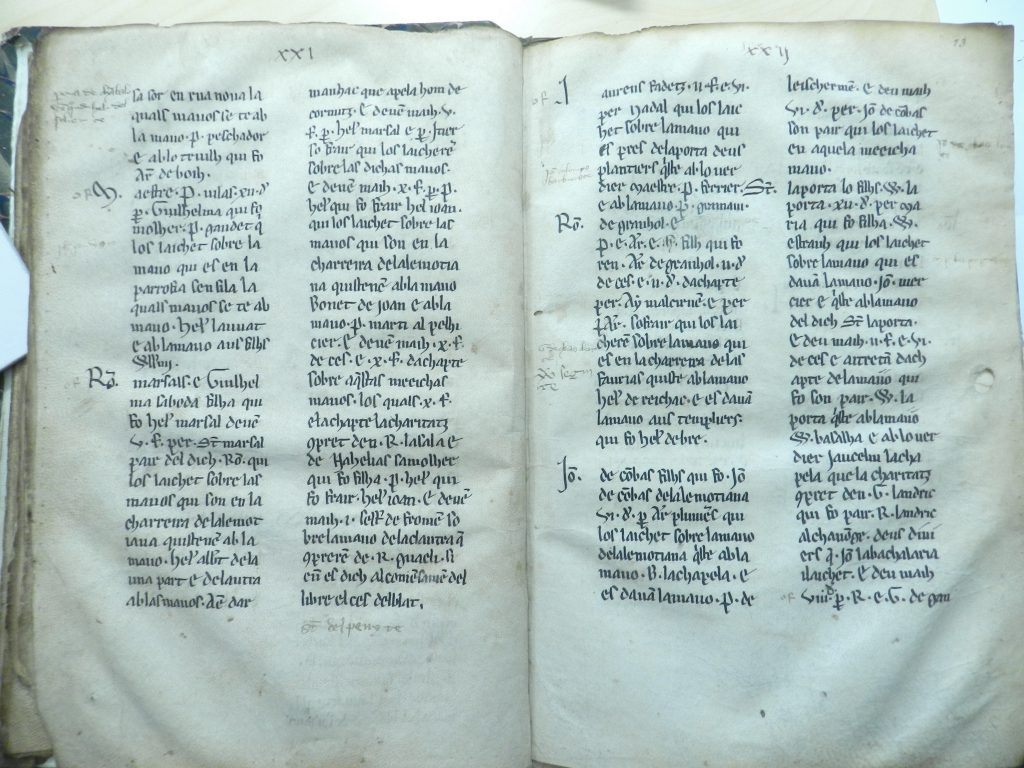 XXI
la sor en rua noua la
quals maios se te ab
la maio .P. peschador
E ab lo treulh qui fo
Ar̄. de boih.
M. aestre .P. uilas .xii.d̄
p̄. Guilhelma qui fo
molher .P. gaudet q̄
los laichet sobre la
maio qui es en la
parrofia sen sila la
quals maios se te ab
maio .hel̄. lauuat
e ab la maio aus filhs
Ro̅. marsals. e Guilhel
ma saboda filha qui
fo hel̄. marsal deuē
v. f. per. St̄. marsal
pair del dich .Ro̅. qui
los laichet sobre las
maios qui son en la
charreira de la lemot
iana qui se tenē ab la
maio .hel̄. de la
una part e de l autra
ab las maios. Aē dar
manhac que apela hom de
cornutz. E deuē maih .v.
f. p̄. hel̄. marsal e p̄. Itier
so frair qui los laicherē
sobre las dichas maios.
E deuē maih .x. f. p̄. p̄.
hel̄. qui fo frair hel̄. ioan.
qui los laichet sobre las
maios qui son en la
charreira de la lemotia
na qui se tenē ab la maio
Bonet de Joan e ab la
maio .P. marti al pelhi
cier. E deuē maih .x. f.
de ces. e .x. f. dachapte
sobre aq̄stas meeichas
maios. los quals .x. f.
e lachapte la charitatz
q̄pret den .R. la sala e
de Nahelias sa molher
qui fo filha .P. hel̄. qui
fo frair .hel̄. ioan. E deuē
maih .i. sest̄. de fromē so
bre la maio de la clautra q̄
q̄prerē de .R. guach. si
cū es dich al comēsamē del
libre el ces del blat.
St̄ del peyre
XXII
13
J aureus fadetz .ii. f. e .vi.
per Nadal qui los laic
het sobre la maio qui
es pres de la porta deus
plantiers q̄ste ab lo uer
dier maestre .P. ferrier.
e ab la maio .P. gramaui.
Ro̅. de granhol. e
P. e. Ar̄. e. h. filh qui fo
ren. Ar̄. de granhol .ii. d̄.
de ces. e .ii. d̄. dachapte
per. Ay malcirnē. e per
Ar̄. so frair qui los lai
cherē sobre la maio qui
es en la charreira de las
faurias qui ste ab la maio
hel̄. de reichac. e es dauā
la maio aus templiers.
qui fo hel̄. de bre.
Jo̅. de cōbas filhs qui fo .Jo̅.
de cōbas de la lemotiana
vi. d̄. p̄. Ar̄. plumēs qui
los laichet sobre la maio
de la lemotiana q̄ste ab la
maio .B. la chapela. e
es dauā la maio .P. de
leischermē. E deu maih
vi. d̄. per. Jo̅. de cōbas
son pair qui los laichet
en aquela meeicha
maio.
St̄. la porta lo filhs .W. la
porta .xii. d̄. per ma
ria qui fo filha .W.
estranh qui los laichet
sobre la maio qui es
dauā la maio .Jo̅. mer
cier e q̄ste ab la maio
del dich St̄. la porta.
E deu maih .ii. f. e .vi.
de ces e autretā dach
apte de la maio qui
fo son pair .W. la
porta q̄ste ab la maio
W. basalha e ab lo uer
dier Jaucelm la cha
pela que la charitatz
q̄pret den .G. landric
qui fo pair .R. landric
al chanōge. deus dini
ers q̄. Jo̅. la bachalaria
i laichet. E deu maih
viii d̄. p̄. R. e. G. de gen